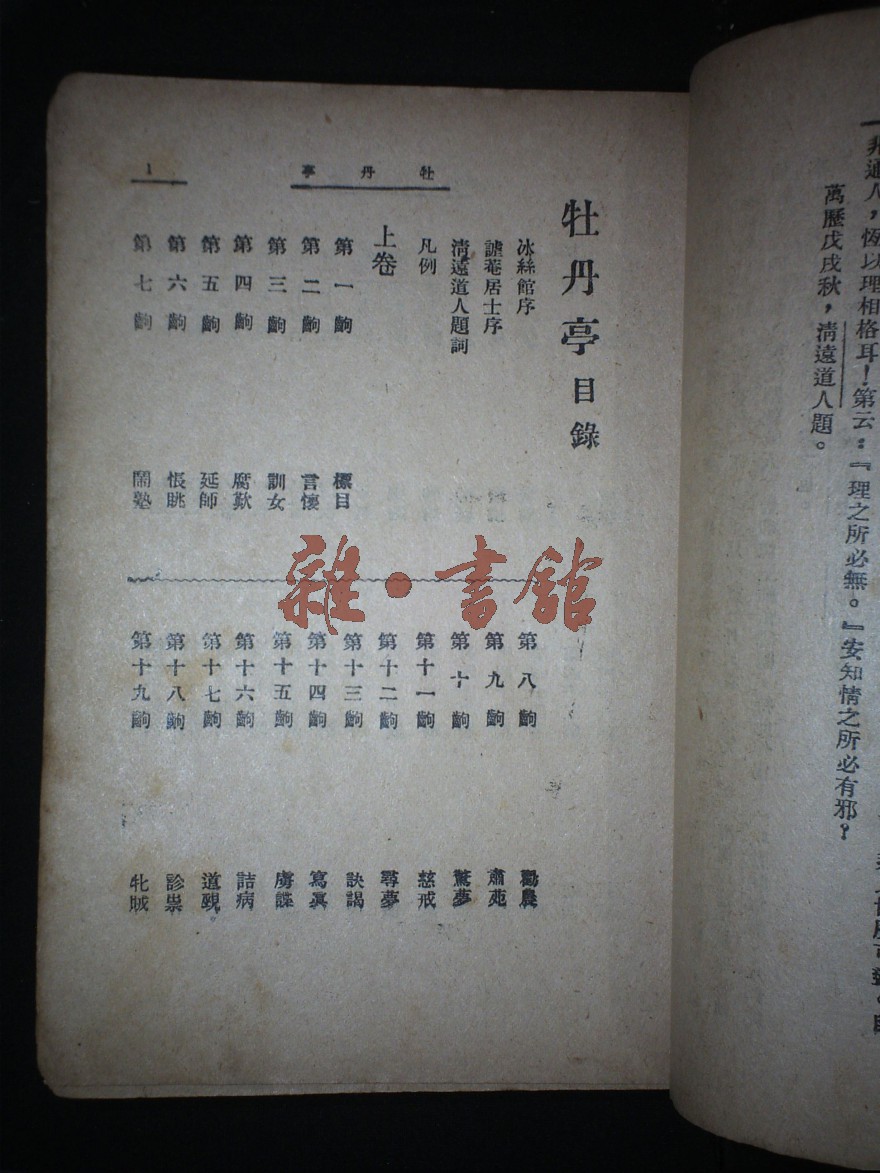 非通人，恆以理相格耳！第云：『理之所必無。』安知情之所必有邪？
萬歷戊戌秋，淸遠道人題。
牡丹亭
1
牡丹亭目錄
冰絲館序
謔菴居士序
淸遠道人題詞
凡例
上卷
第一齣 標目
第二齣 言懷
第三齣 訓女
第四齣 腐歎
第五齣 延師
第六齣 悵眺
第七齣 鬧塾
第八齣 勸農
第九齣 肅苑
第十齣 驚夢
第十一齣 慈戒
第十二齣 尋夢
第十三齣 訣謁
第十四齣 寫眞
第十五齣 虜諜
第十六齣 詰病
第十七齣 道覡。
第十八齣 診祟
第十九齣 牝賊
雜·書館